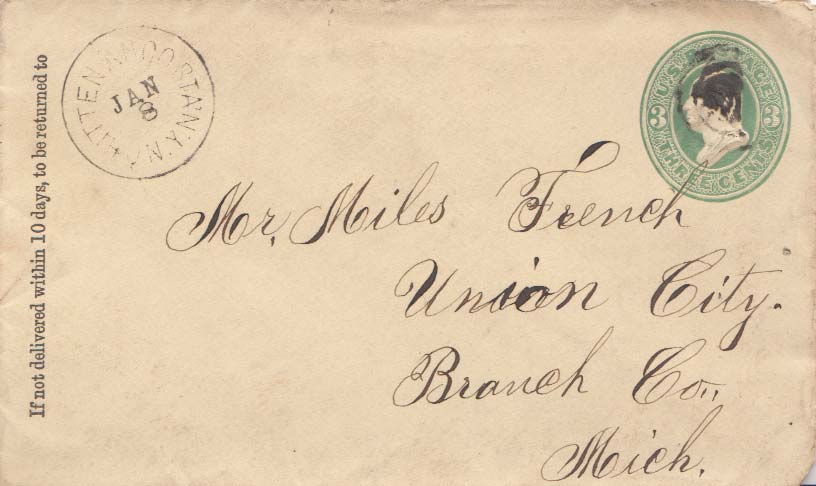 If not delivered within 10 days, to be returned to
CHITTENANGO STA. N.Y.
JAN
8
U.S.
3 3
THREE CENTS
Mr. Miles French
Union City.
Branch Co.,
Mich.